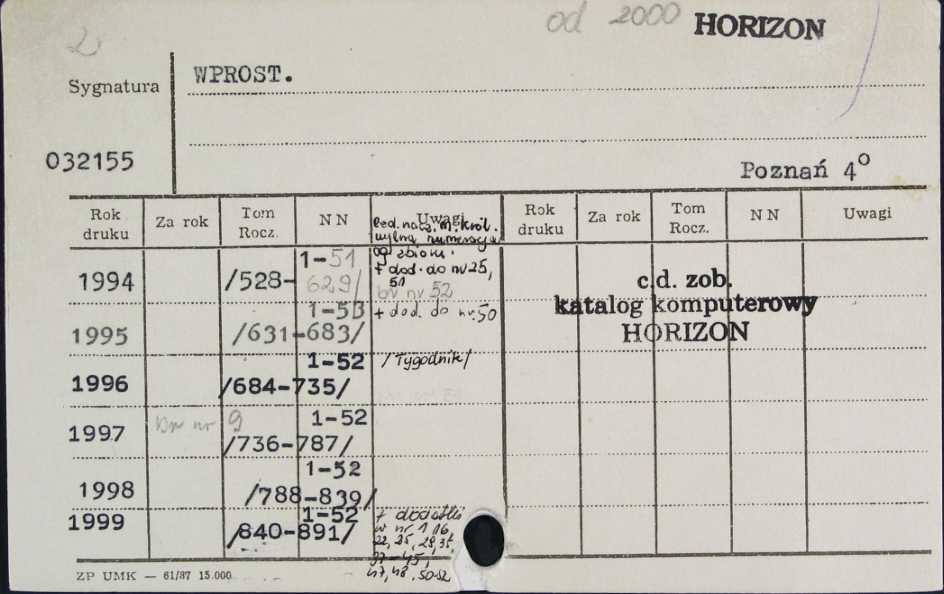 od 2000 HORIZON
2
Sygnatura
WPROST.
032155
Poznań 4°
Rok druku Za rok Tom Rocz. NN Uwagi Rok druku Za rok Tom Rocz. NN Uwagi
Red. nacz. M. Król.
numeracja
og zbioru.
1994 /528- 1-51
629/
+ dod. do nr 25,
51
br nr 52
1995 1-53
/631-683/
+ dod. do nr. 50
1996 1-52
/684-735/
/Tygodnik/
1997 br nr 9 1-52
/736-787/
1998 1-52
/788-839/
1999 1-52
/840-891/
+ dodatki
w nr. 1, 16
22, 25, 29, 35,
37-45,
47, 48, 50-52
c.d. zob.
katalog komputerowy
HORIZON
ZP UMK — 61/87 15.000